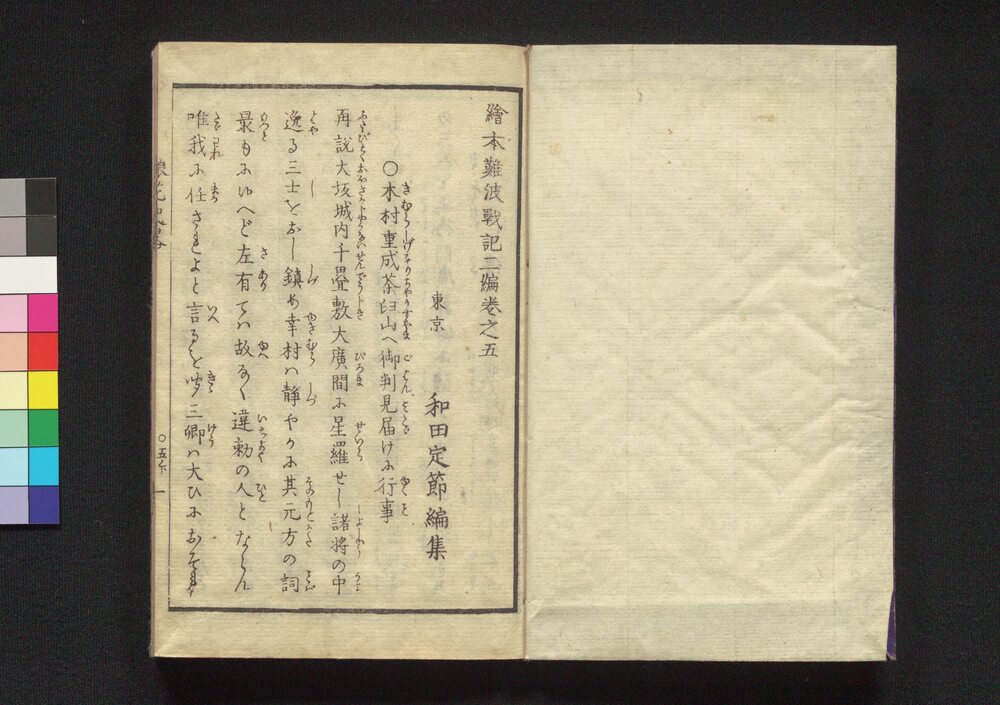 繪本難波戰記二編卷之五
東京 和田定節編集
○木村重成茶臼山へ御判見届けに行事
再説大坂城内千疊敷大廣間に星羅せし諸将の中
逸る三士をおし鎮め幸村ハ静やかに其元方の詞
最もにハへど左有てハ故なく違勅の人とならん
唯我に任されよと言るを聞三卿ハ大ひにおそれ
○五下 一